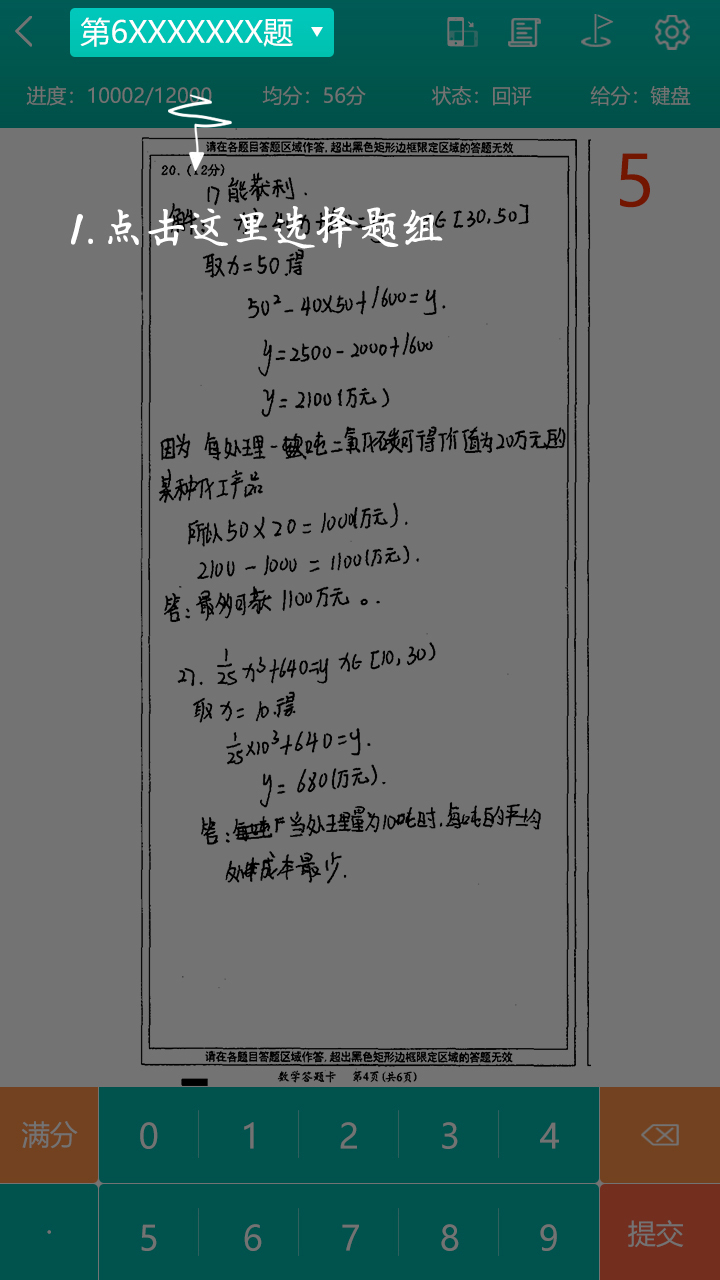 第6XXXXXXX题
进度：10002/12000 均分：56分 状态：回评 给分：键盘
请在各题目答题区域作答,超出黑色矩形边框限定区域的答题无效
5
20.(12分)
1)能获利.
1.点击这里选择题组
∈[30,50]
取x=50得
50²-40×50+1600=y.
y=2500-2000+1600
y=2100(万元)
因为 每处理一吨二氧化碳可得价值为20万元的
某种化工产品
所以50×20=1000(万元).
2100-1000=1100(万元).
答:最多可获1100万元。.
2). 1/25 x³+640=y x∈[10,30)
取x=10.得
1/25×10³+640=y.
y=680(万元).
答: 当处理量为10吨时,每吨的平均
成本最少.
请在各题目答题区域作答,超出黑色矩形边框限定区域的答题无效
数学答题卡 第4页(共6页)
满分 0 1 2 3 4
. 5 6 7 8 9 提交